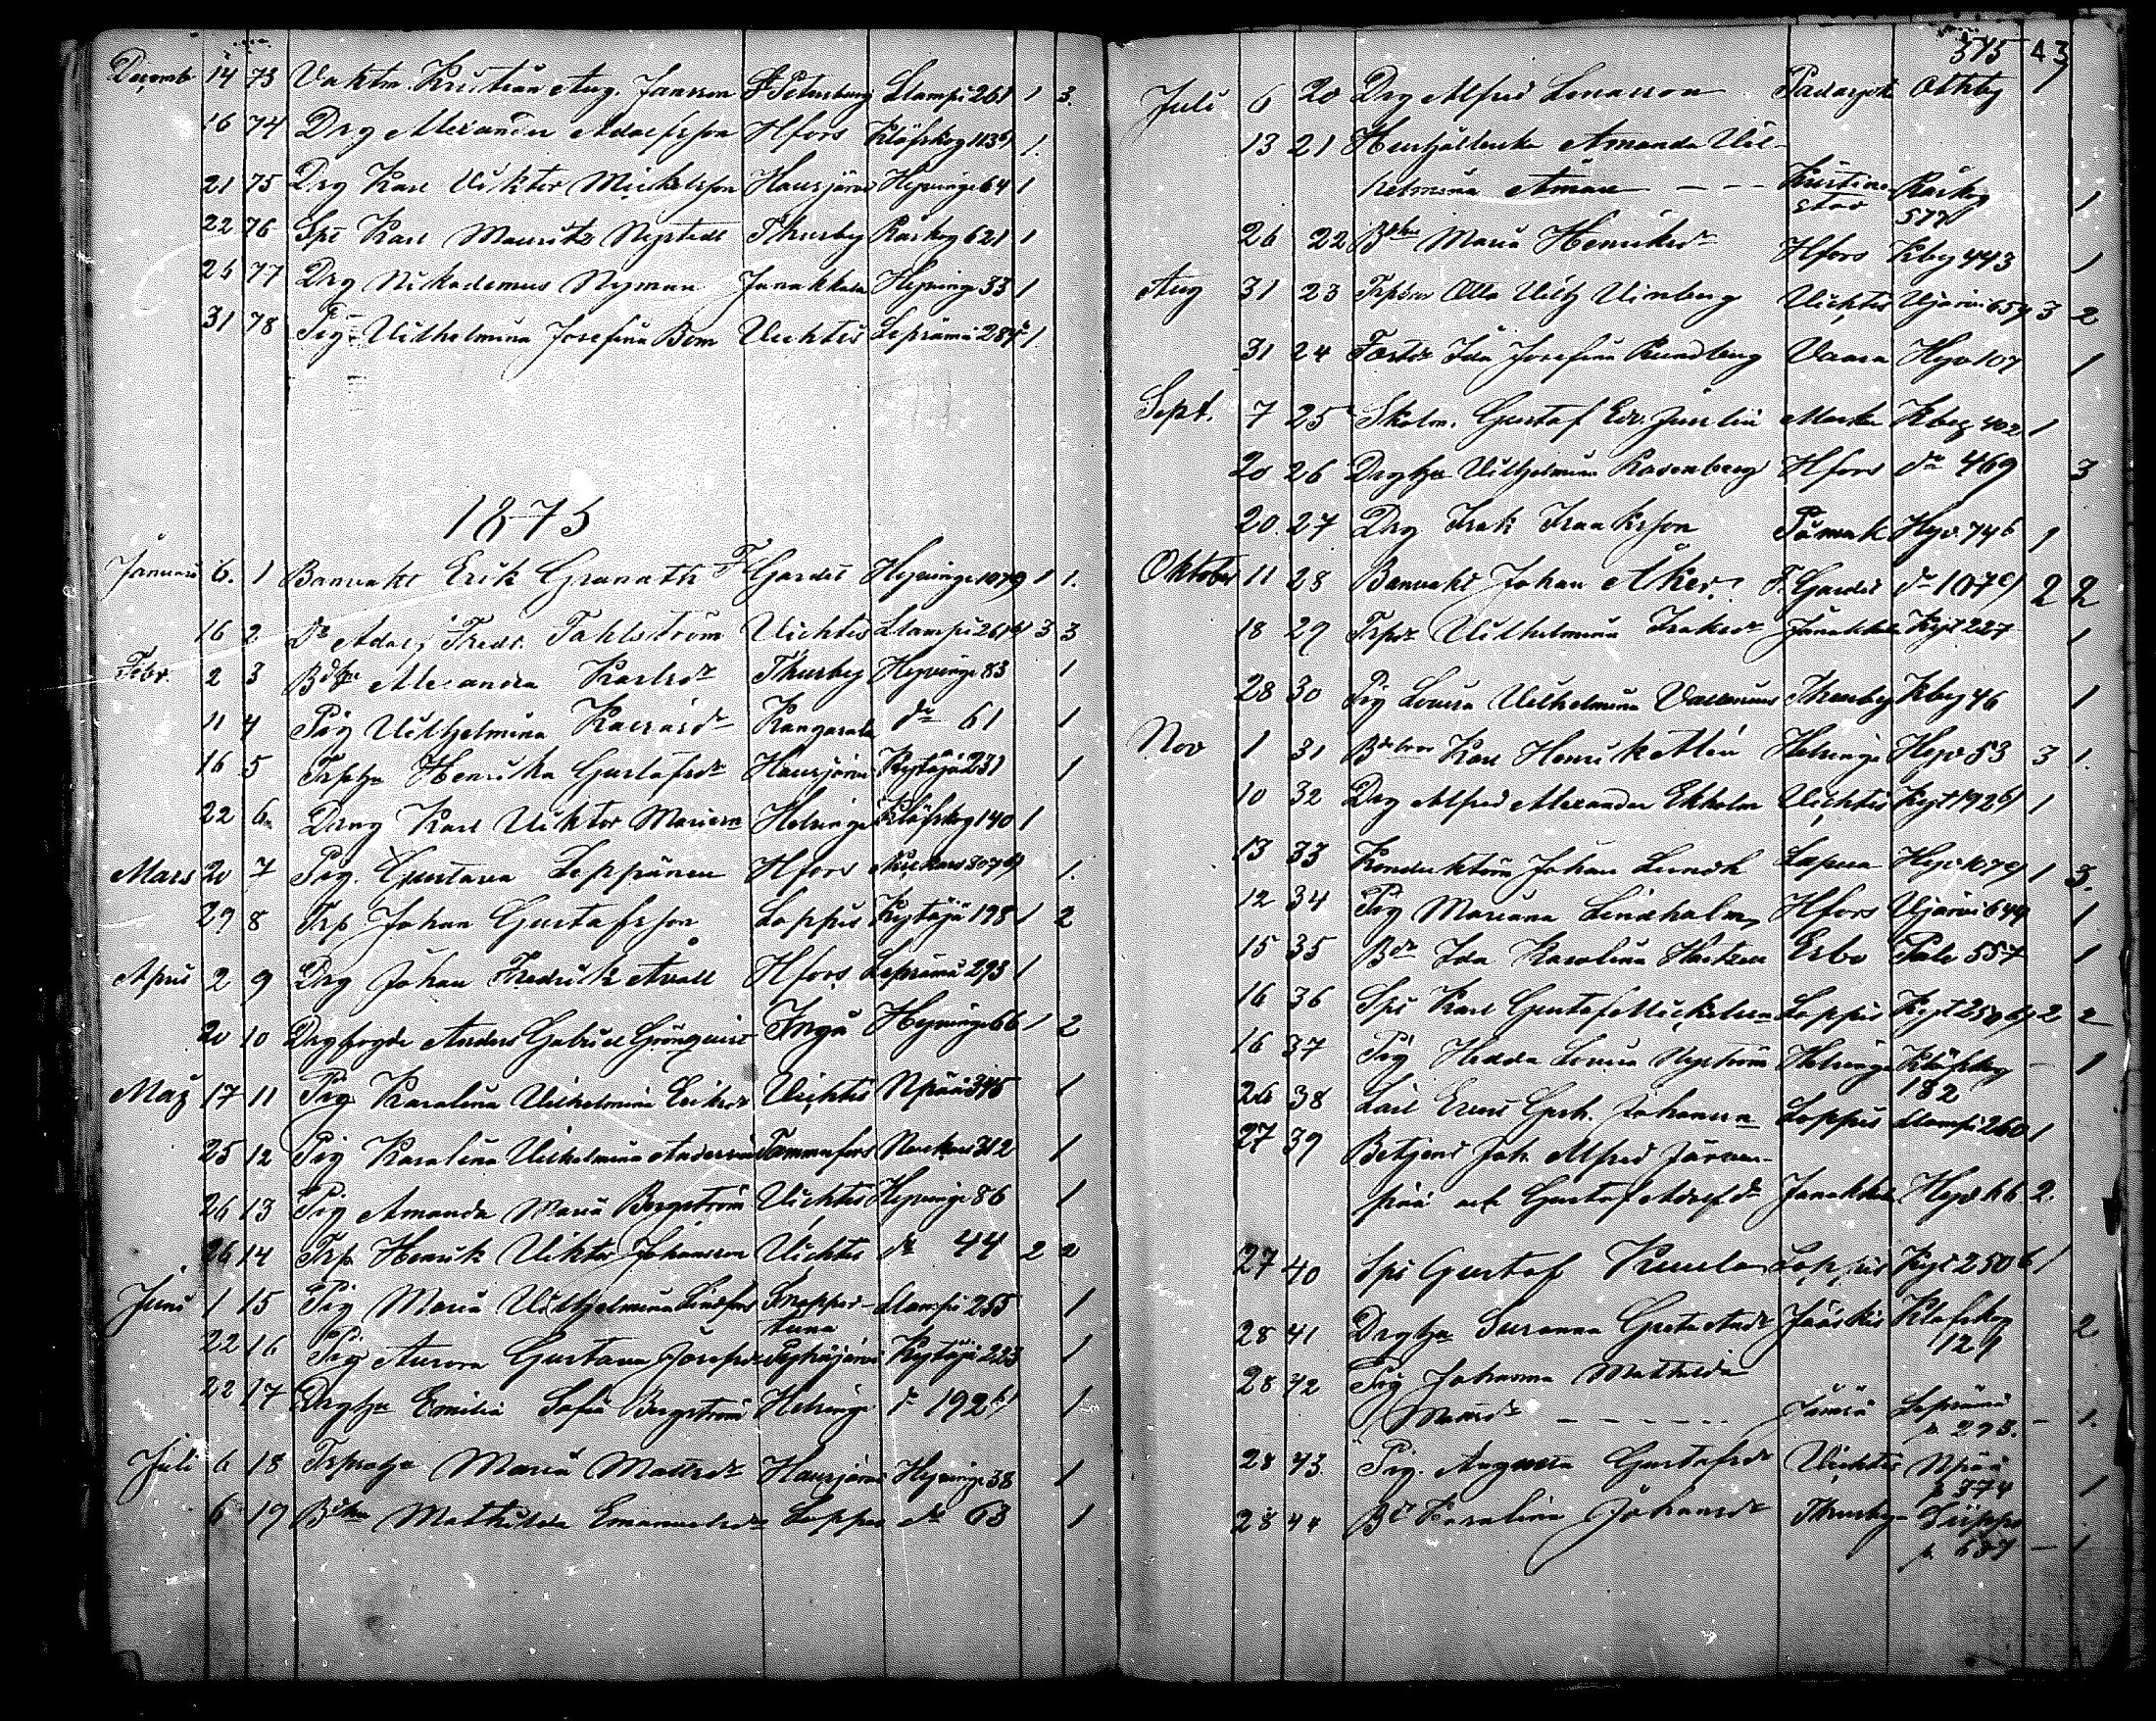 Decemb 14 73 Vaktm. Kristian Aug. Jansson St Petersburg Llampi 261 1 3.
16 74 Drg Alexander Adolfsson Hfors Klöfskog 113 1.
21 75 Drg Karl Viktor Mickelsson Hausjärvi Hyvinge 64 1
22 76 Spi Karl Mauritz Nystedt Thusby Råskog 621 1
25 77 Drg Nikodemus Nyman Janakkala Hyvinge 33 1
31 78 Pig Vilhelmina Josefina Bom Vichtis Lepsämä 284 1
1875
Januari 6. 1 Banvakt Erik Granath F. Gardet Hyvinge 1079 1 1.
16 2 Do Adolf Fredr. Fahlström Vichtis Llampi 261 3 3
Febr. 2 3 Bdhu Alexandra Karlsdr Thusby Hyvinge 83 1
11 4 Pig Vilhelmina Kaisasdr Kangasala do 61 1
16 5 Trphu Henrika Gustafsdr Hausjärvi Kytäjä 231 1
22 6. Drng Karl Viktor Mariason Helsinge Klöfskog 140 1
Mars 20 7 Pig. Gustava Leppänen Hfors Nuckars 307 1.
29 8 Trp Johan Gustafsson Loppis Kytäjä 198 1 2
April 2 9 Drg Johan Fredrik Avall Hfors Lepsämä 293 1
20 10 Drgfogde Anders Gabriel Grönqvist Ingå Hyvinge 66 1 2
Maj 17 11 Pig Karolina Vilhelmina Eriksdr Vichtis Npää 395 1
25 12 Pig Karolina Vilhelmina Andersin Tammerfors Nuckars 312 1
26 13 Pig Amanda Maria Bergström Vichtis Hyvinge 86 1
26 14 Trp Henrik Viktor Johansson Vichtis do 44 2 2
Juni 1 15 Pig Maria Vilhelmina Lindfors Snapper- Llampi 255 1
tuna
22 16 Pig Aurora Gustava Josefsdr Pyhäjärvi Kytäjä 223 1
22 17 Drghu Emilia Sofia Bergström Helsinge do 192 1
Juli 6 18 Trpahu Maria Mattsdr Hausjärvi Hyvinge 38 1
6 19 Bdhu Mathilda Emanuelsdr Loppis do 63 1
375 43
Juli 6 20 Drg Alfred Lenasson Padasjoki Othby 1
13 21 Hushållerska Amanda Vil-
helmina Åman — — — Kristine- Råskog
stad 577 1
26 22 Bdhu Maria Henriksdr Hfors Kby 443 1
Aug 31 23 Trpson Otto Vilh Vinberg Vichtis Ujärvi 657 3 2
31 24 Fostdr Ida Josefina Rundberg Vaasa Hyv 107 1
Sept. 7 25 Skolm. Gustaf Edv. Juslin Masku Kby 402 1
20 26 Drghu Vilhelmina Rosenberg Hfors do 469 3
20. 27 Drg Isak Isaksson Pämark Hyv 746 1
Oktober 11 28 Banvakt Johan Åker. F. Gardet do 1079 2 2
18 29 Trpdr Vilhelmina Isaksdr Janakkala Kyt 227 1
28 30 Pig Lovisa Vilhelmina Vallenius Thusby Kby 46 1
Nov 1 31 Karl Henrik Alén Helsinge Hyv 53 3 1.
10 32 Drg Alfred Alexander Ekholm Vichtis Kyt 192 1
13 33 Konduktörn Johan Lundh Lapua Hyv 1079 1 3.
12 34 Pig Mariana Lindholm Hfors Ujärvi 649 1
15 35 Bdr Ida Karolina Hertzen Esbo Palo 557 1
16 36 Spi Karl Gustaf Mickelsson Loppis Kyt 250 2 2
16 37 Pig Hedda Lovisa Nyström Helsinge Klöfskog — 1
182
26 38 Johansson Loppis Llampi 260 1
27 39 Betjent Joh. Alfred Järven-
pää och Gustaf Adolf do Janakkala Hyv. 66 2.
27 40 Spi Gustaf Kuula Loppis Kyt 250 1
28 41 Drghu Susanna Greta Andr Jääskis Klöfskog 2
129
28 42 Pig Johanna Mathilda
Mattsdr — — — — — Jämsä Lepsämä
p 295. — 1.
28 43 Pig. Augusta Gustafsdr Vichtis Npää
p 374 1
28 44 Bdr Karolina Johansdr Thusby Siippo
p 637 — 1